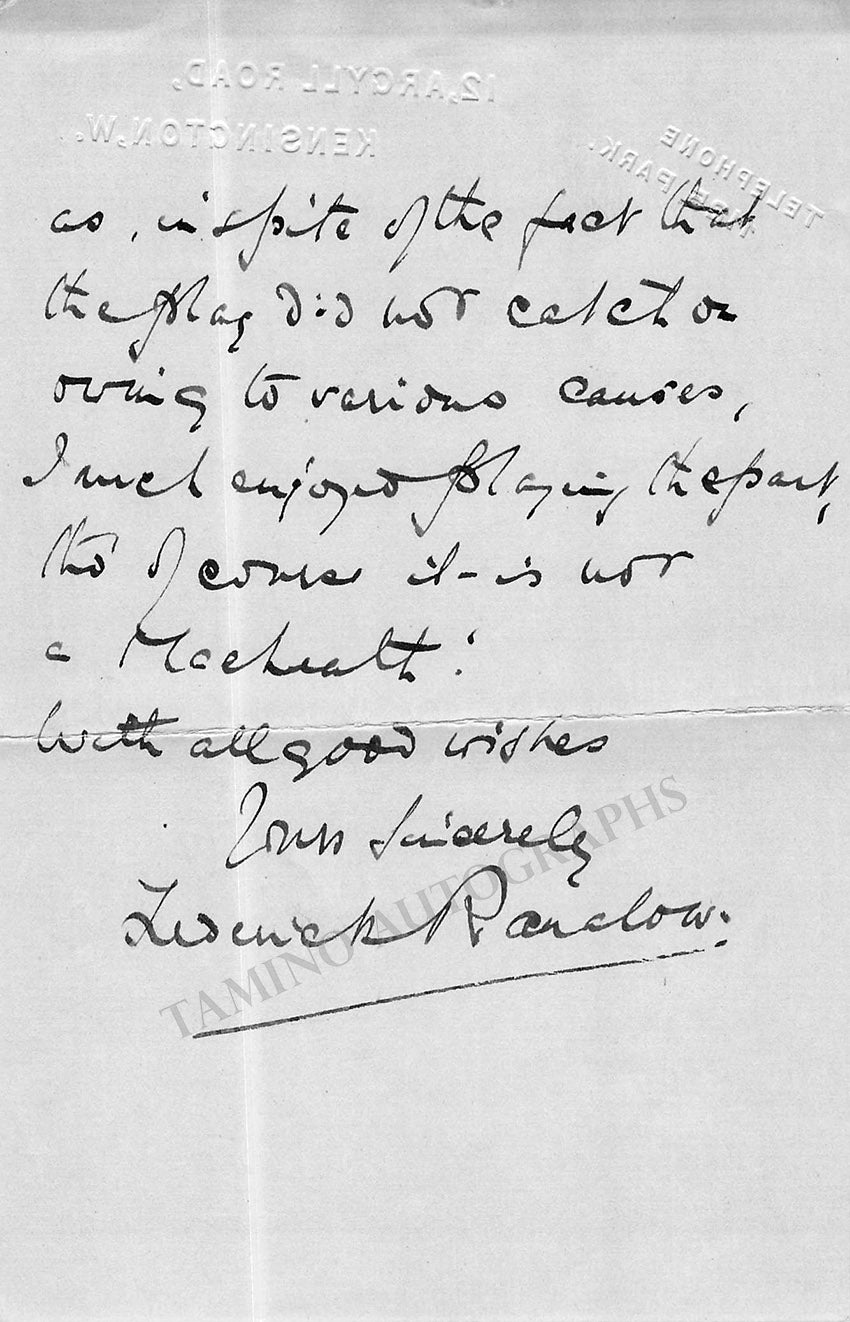 12, ARGYLL ROAD,
KENSINGTON, W.
TELEPHONE
PARK.
as, in spite of the fact that
the play did not catch on
owing to various causes,
I much enjoyed playing the part,
tho' of course it is not
a Macheath!
With all good wishes
Yours Sincerely
Frederick Ranalow.
TAMINO AUTOGRAPHS